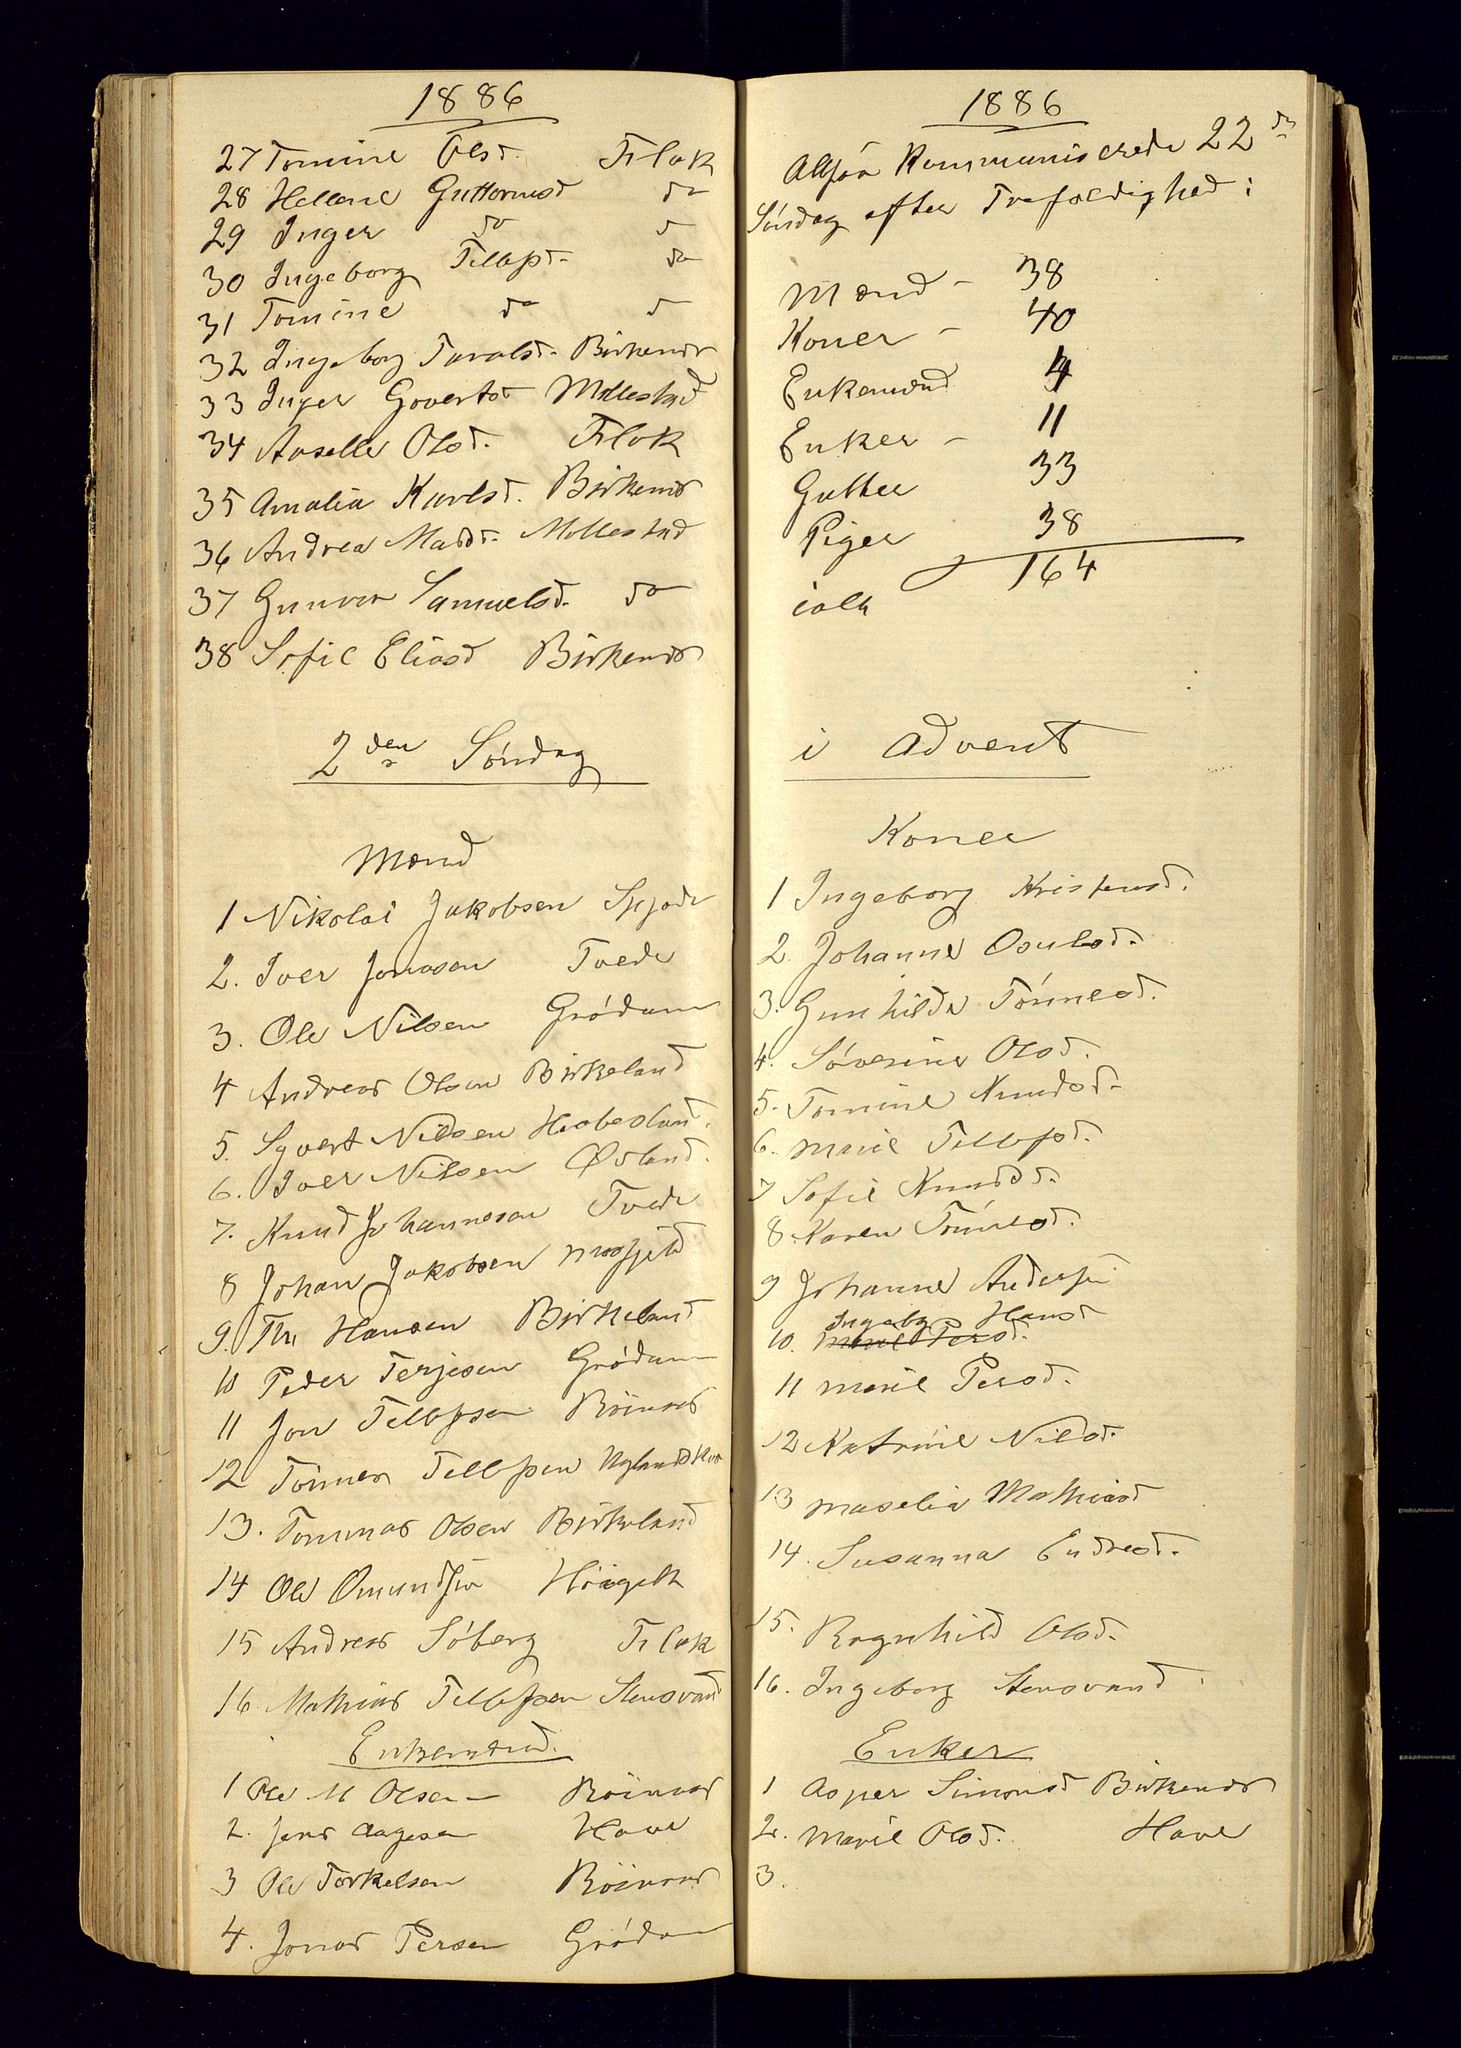 1886
27 Tomine Olsd. Flak
28 Hellene Guttormsd do
29 Inger do do
30 Ingeborg Tellefsd. do
31 Tomine do do
32 Ingeborg Taralsd. Birkenes
33 Inger Govertsd Mollestad
34 Aaselle Olsd. Flak
35 Amalia Karlsd. Birkenes
36 Andrea Madsd. Mollestad
37 Gunvor Samuelsd. do
38 Sofie Eliasd Birkenes
2den Søndag
Mænd
1 Nikolai Jakobsen
2. Iver Jonassen Tvede
3. Ole Nilsen Grødum
4 Andreas Olsen Birkeland
5. Syvert Nilsen Hesbesland.
6. Iver Nilsen Øsland.
7. Knud Johannesen Tvede
8 Johan Jakobsen Mosfjeld
9. Thr Hansen Birkeland
10 Peder Terjesen Grødum
11 Jon Tellefsen Røinaas
12 Tønnes Tellefsen
13. Tommas Olsen Birkeland
14 Ole Omundsen
15 Andreas Søberg Flak
16. Mathias Tellefsen Stensvand
Enkemænd.
1 Ole M Olsen Røinaas
2. Jens Aagesen Have
3 Ole Torkelsen Røinaas
4. Jonas Persen Grødum
1886
Altsaa Kommunicerede 22de
Søndag efter Trefoldighed:
Mænd - 38
Koner - 40
Enkemænd 4
Enker - 11
Gutter 33
Piger 38
ialt 164
i Advent
Koner
1 Ingeborg Kristensd.
2. Johanne Osulsd.
3. Gunhilde Tønnesd.
4. Søverine Olsd.
5. Tomine Knudsd.
6. Marie Tellefsd.
7 Sofie Knudsd.
8. Karen Tønnesd.
9 Johanne Andersen
Ingebg Hansd
10. Marie Persd.
11 Marie Persd.
12 Katrine Nilsd.
13 Maselia Mathiasd
14. Susanna Endresd.
15. Ragnhild Olsd.
16. Ingeborg Stensvand
Enker
1 Asper Simonsd Birkenes
2. Marie Olsd. Have
3.